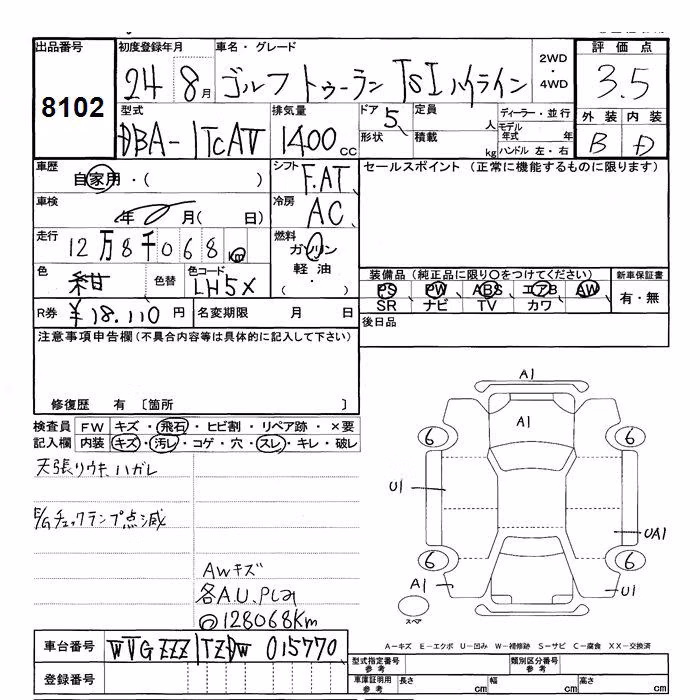 出品番号 初度登録年月 車名・グレード 2WD・4WD 評価点
8102 24 8月 ゴルフトゥーラン TSI ハイライン 3.5
型式 排気量 ドア 5 定員 人 ディーラー・並行 外装 内装
DBA-1TCAV 1400cc 形状 積載 kg モデル年式 年 ハンドル 左・右 B D
車歴 自家用・( ) シフト F.AT セールスポイント (正常に機能するものに限ります)
車検 年 月( 日) 冷房 AC
走行 12万8千068km 燃料 ガソリン
軽油・( )
色 紺 色替 色コード LH5X 装備品(純正品に限り○をつけてください) 新車保証書
PS PW ABS エアB AW 有・無
SR ナビ TV カワ
R券 ¥18.110円 名変期限 月 日 後日品
注意事項申告欄(不具合内容等は具体的に記入して下さい)
修復歴 有 〔箇所 〕
検査員 FW キズ・飛石・ヒビ割・リペア跡・×要
記入欄 内装 キズ・汚レ・コゲ・穴・スレ・キレ・破レ
天張リウキ ハガレ
E/Gチェックランプ点滅
AWキズ
各A.U.Pレカ
128068Km
A1
A1
6 6
U1
UA1
6 6
A1 U1
スペア
A-キズ E-エクボ U-凹み W-補修跡 S-サビ C-腐食 XX-交換済
車台番号 WVGZZZ1TZDW015770 型式指定番号 参考 類別区分番号 参考
登録番号 車庫証明用 参考 長さ cm 幅 cm 高さ cm